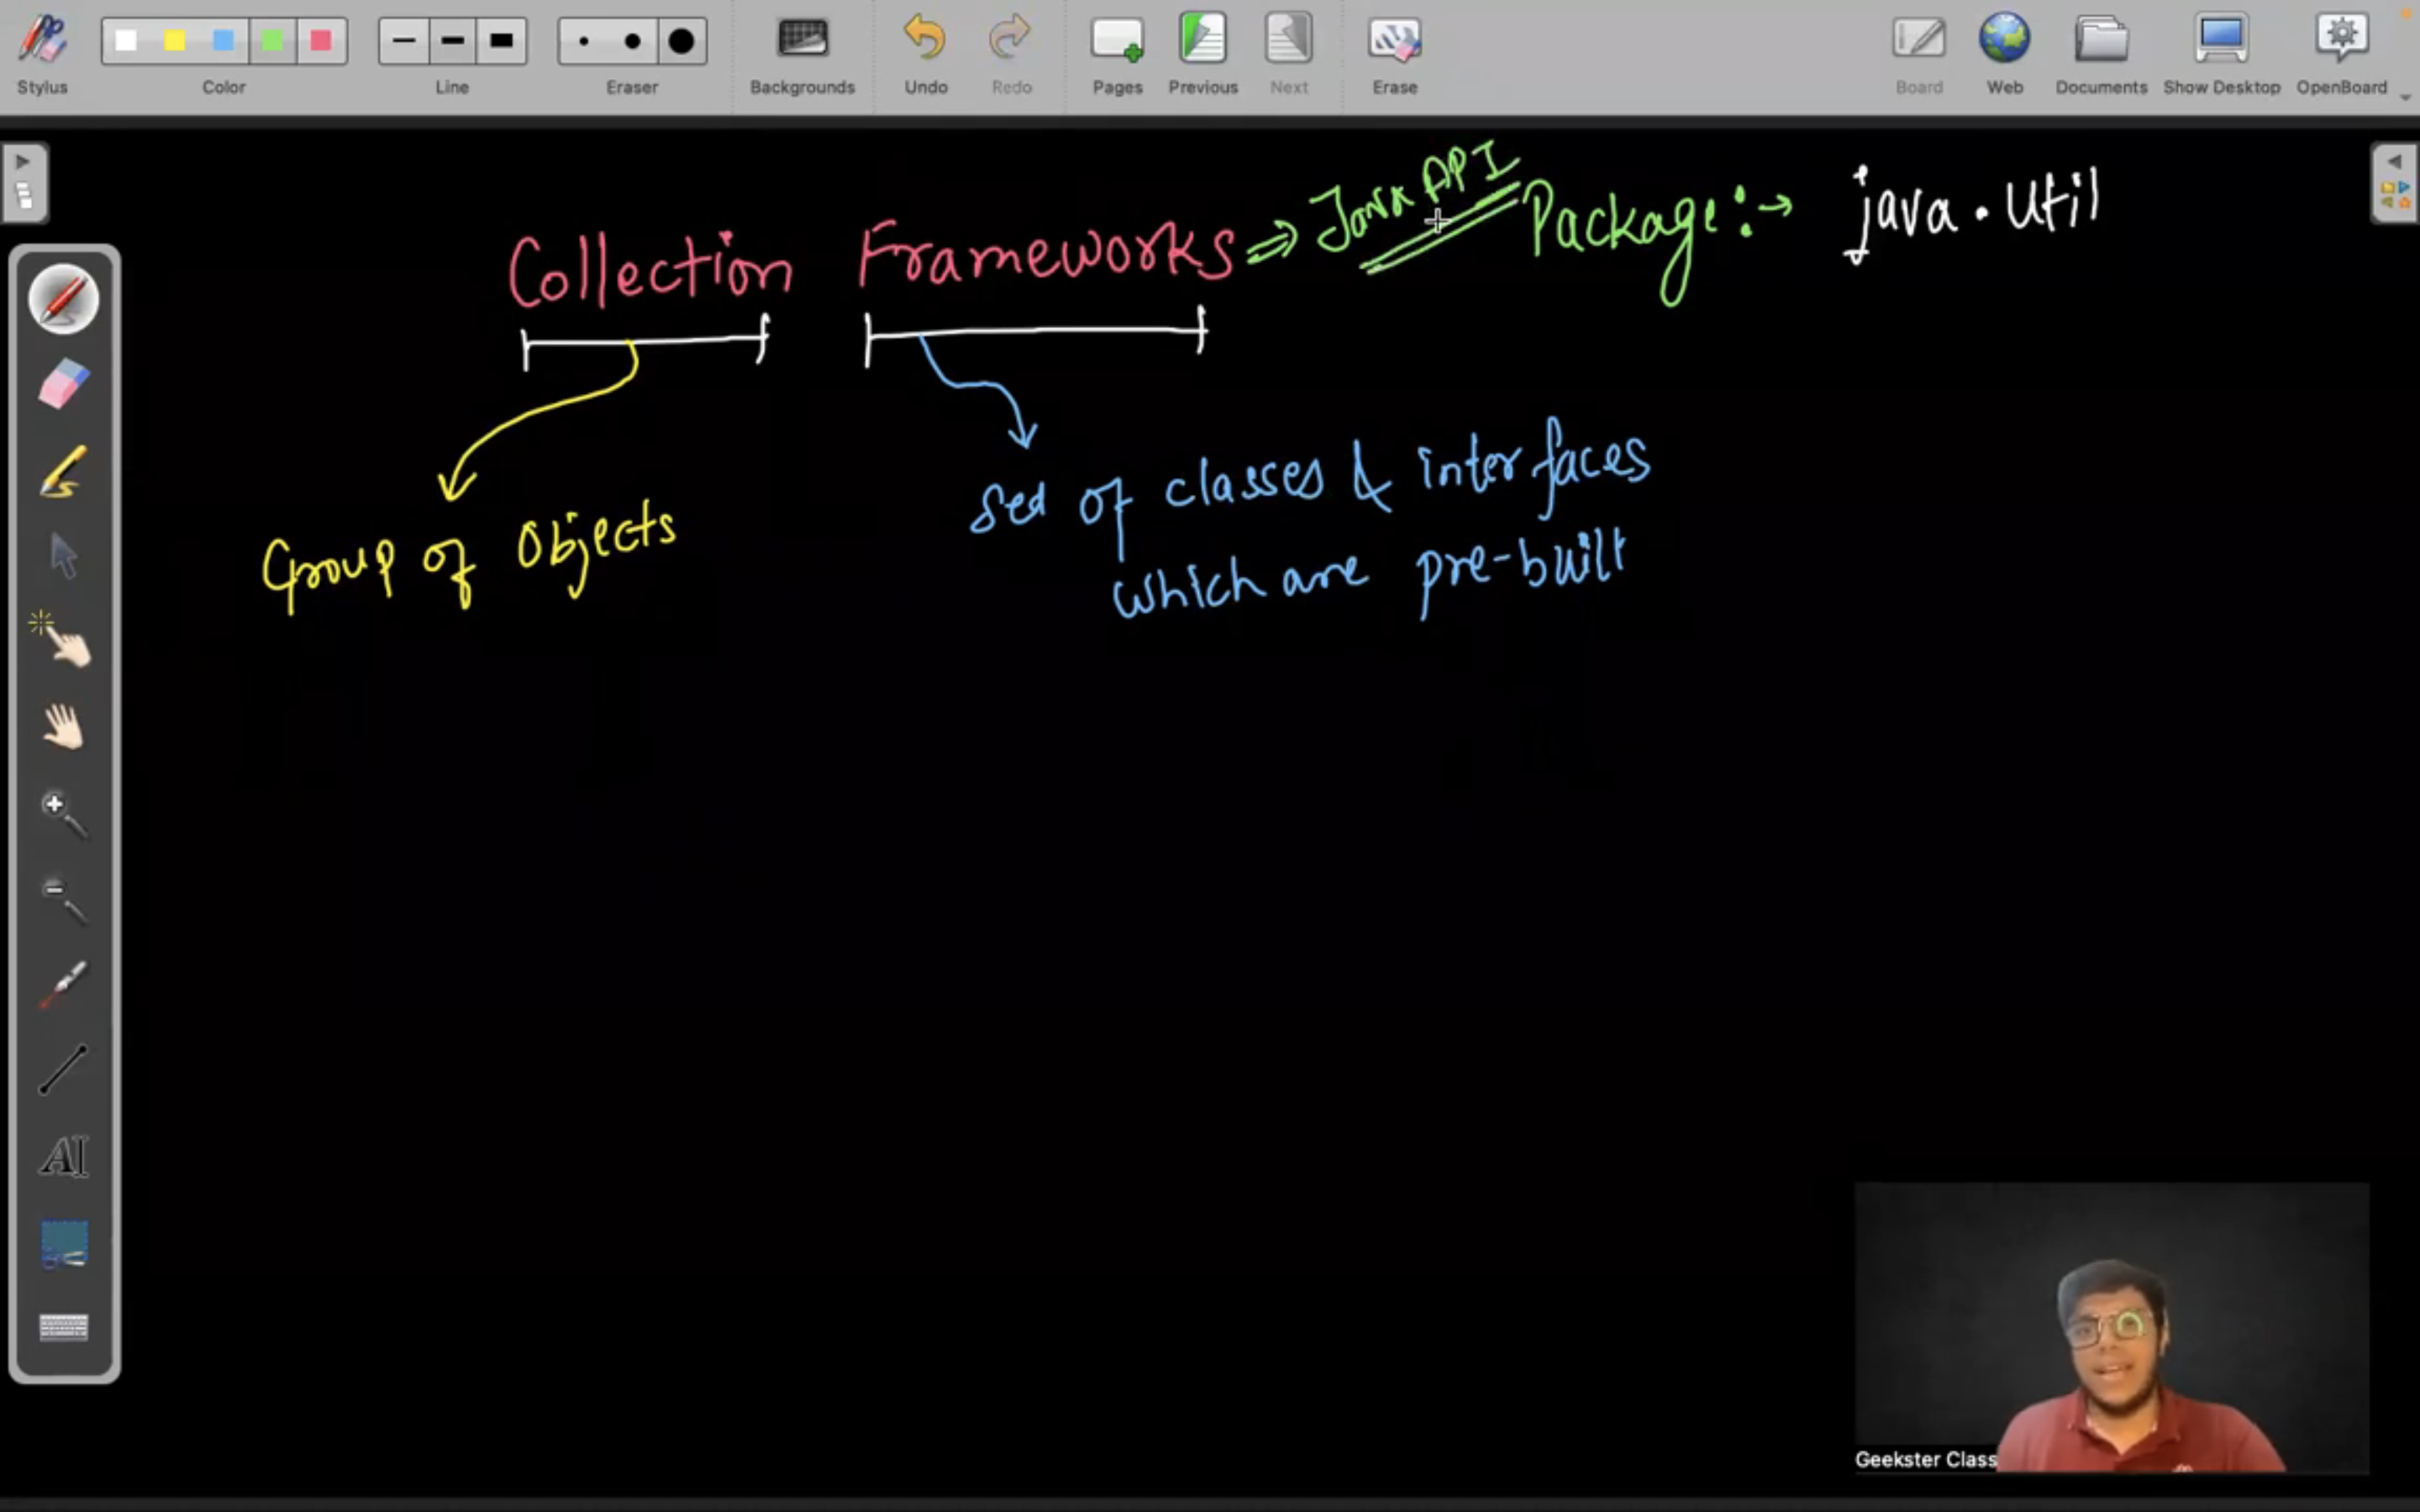 Stylus Color Line Eraser Backgrounds Undo Redo Pages Previous Next Erase Board Web Documents Show Desktop OpenBoard
Collection Frameworks ⇒ Java API Package :→ java.util
Group of Objects
set of classes & interfaces
which are pre-built
AI
Geekster Class